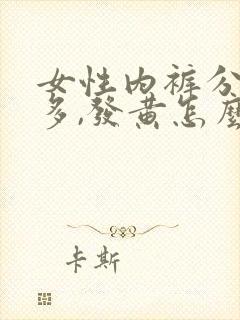 女性内裤分
多,發黄怎麼
卡斯